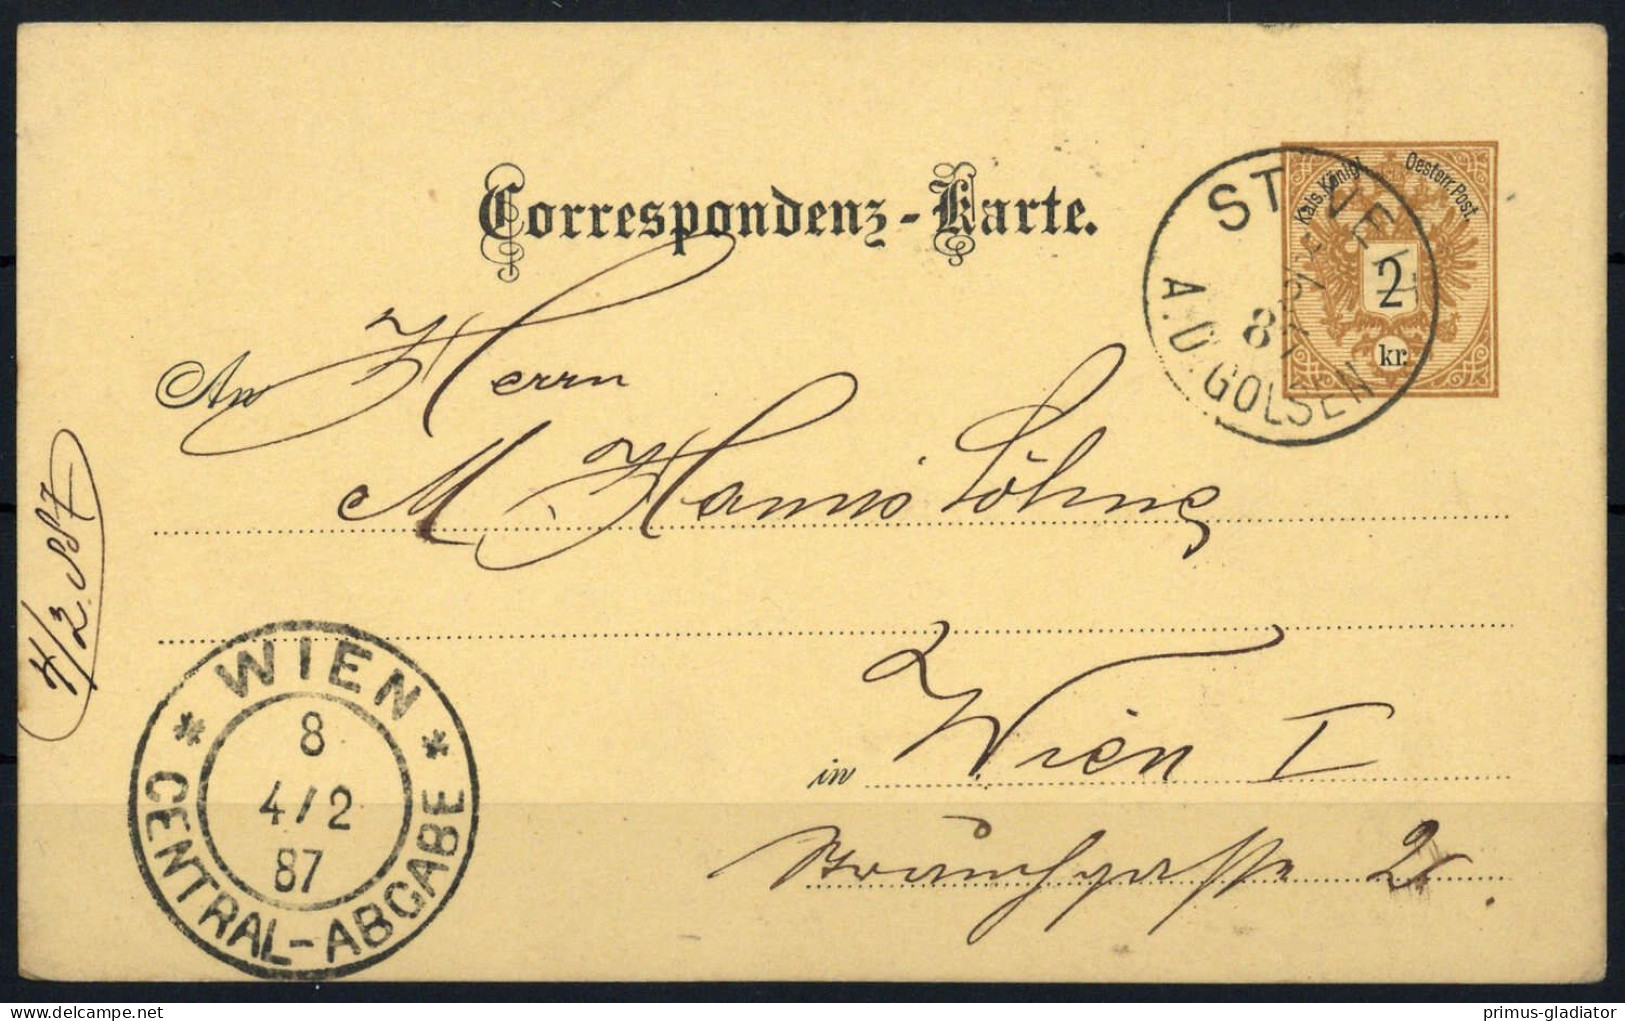 Correspondenz-Karte.
Kais. Königl. Oesterr. Post.
2
kr.
ST. VEIT
A.D. GÖLSEN
87
An Herrn
M Hanni's Söhne
in Wien I
Strauchgasse 2.
4/2.887
* WIEN *
8
4/2
87
CENTRAL-ABGABE
delcampe.net
primus-gladiator